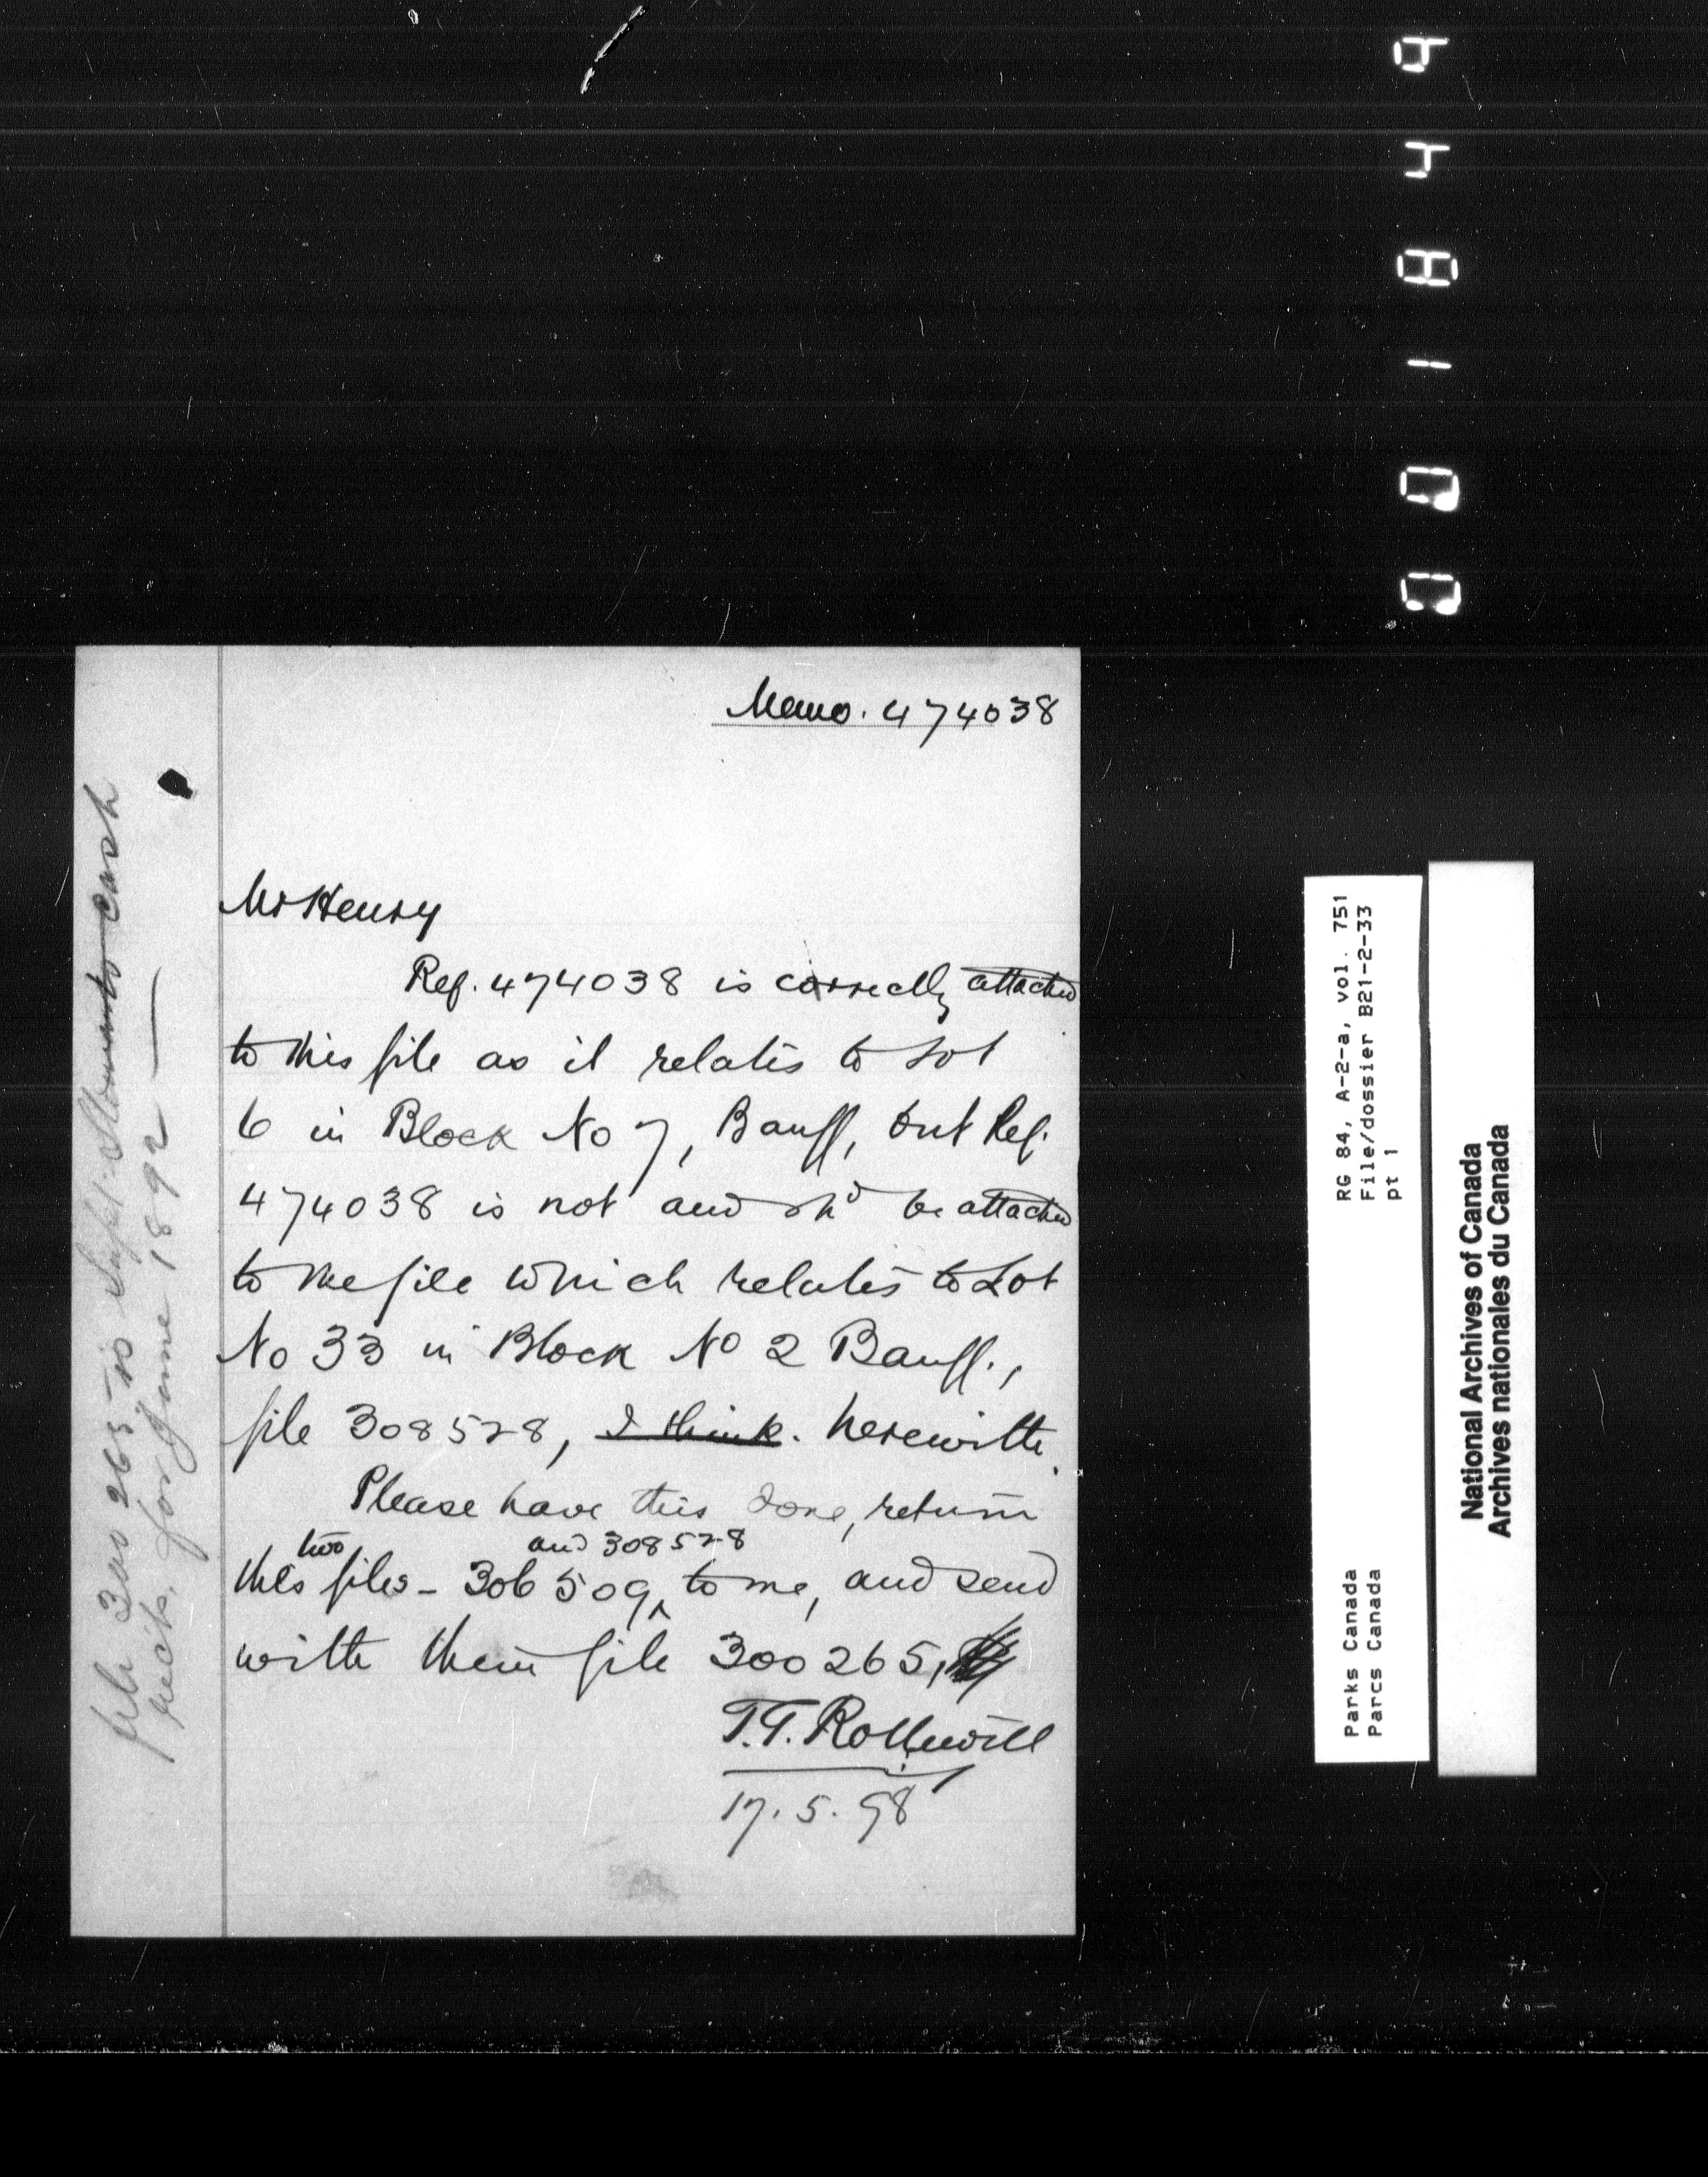 Memo. 474038
Mr Henry
Ref. 474038 is correctly attached
to this file as it relates to Lot
6 in Block No 7, Banff, but Ref.
474038 is not and shd be attached
to the file which relates to Lot
No 33 in Block No 2 Banff.,
file 308528, I think. herewith.
Please have this done, return
two and 308528
thes files - 306509, to me, and send
with them file 300265,
T.G. Rothwell
17.5.98
file 300265 is Supt. cash
rects. for June 1892 —
RG 84, A-2-a, vol. 751
File/dossier B21-2-33
pt 1
Parks Canada
Parcs Canada
National Archives of Canada
Archives nationales du Canada